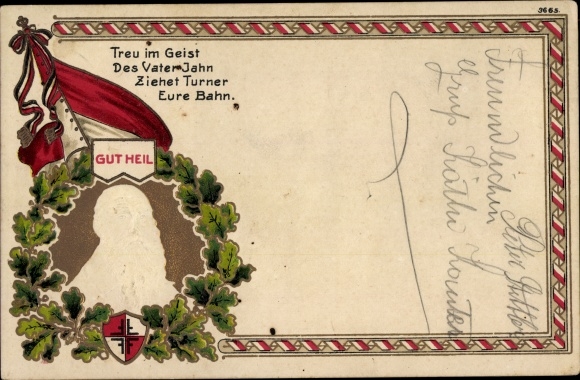 3665.
Treu im Geist
Des Vater Jahn
Ziehet Turner
Eure Bahn.
GUT HEIL
Freundlichen
Gruß Käthe